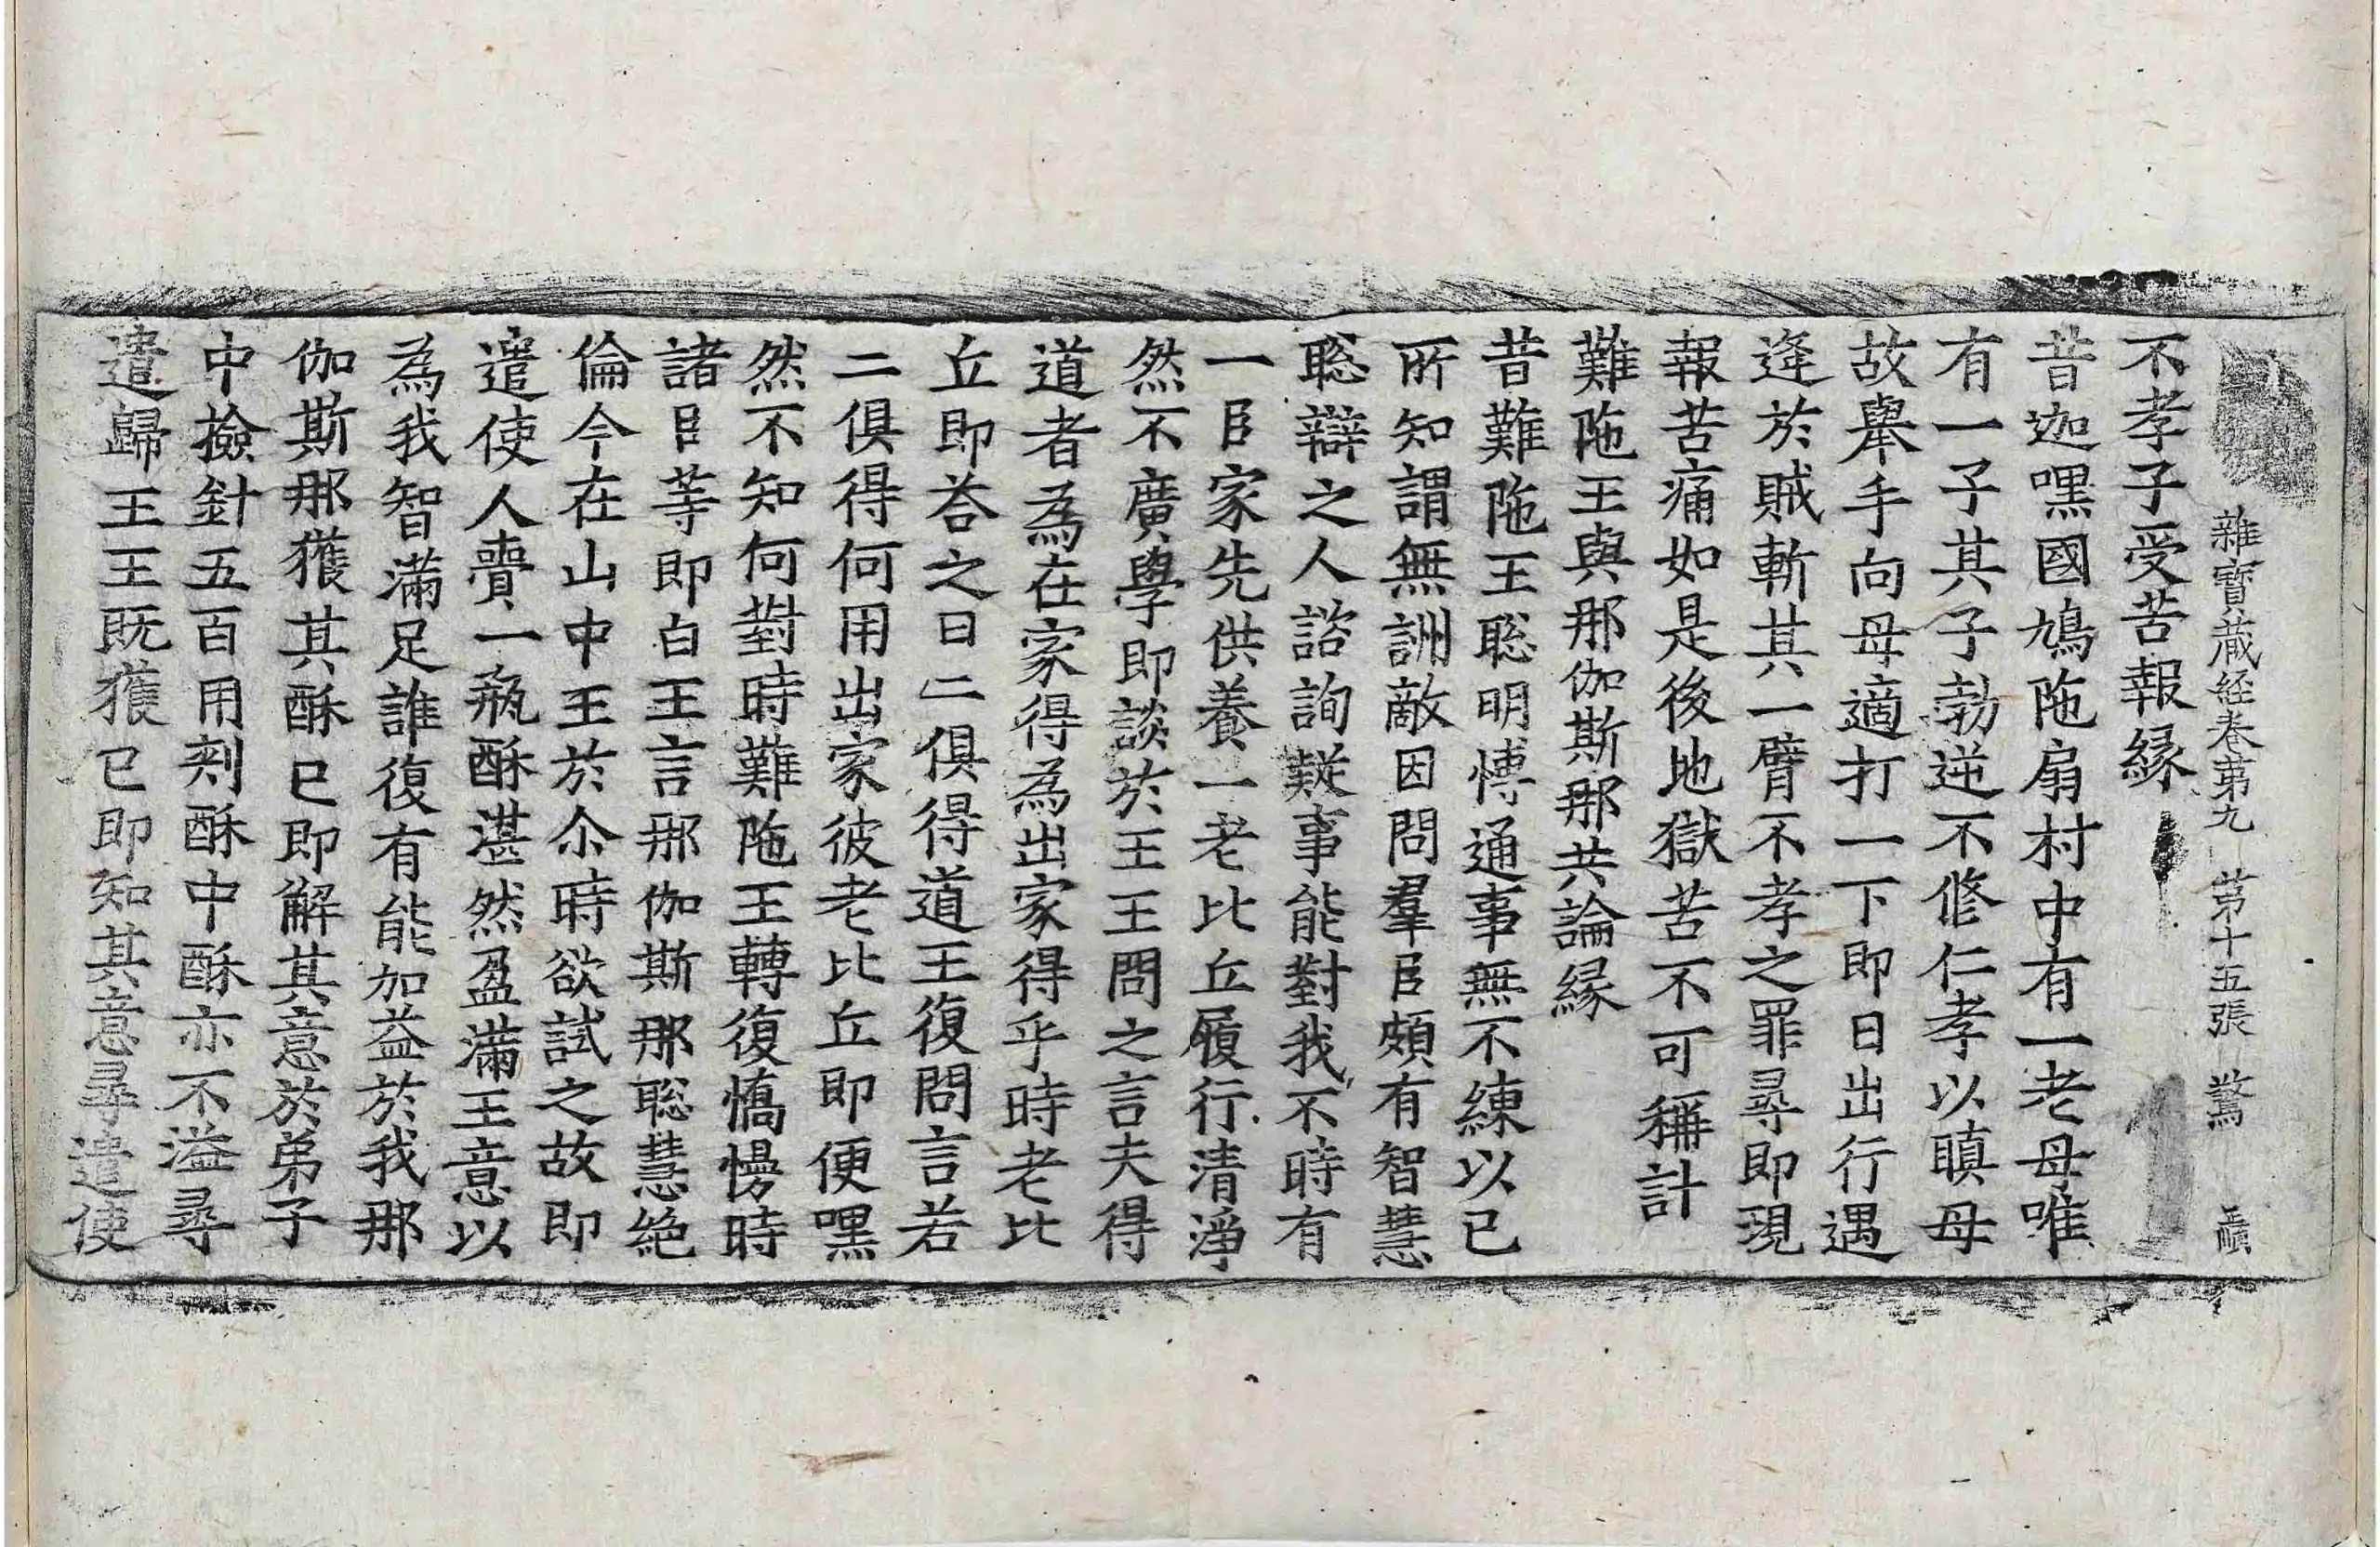 雜寶藏經卷第九 第十五張 驚
不孝子受苦報縁
昔迦嘿國鳩陁扇村中有一老母唯
有一子其子勃逆不修仁孝以瞋母
故舉手向母適打一下即日出行遇
逢於賊斬其一臂不孝之罪尋即現
報苦痛如是後地獄苦不可稱計
難陁王與那伽斯那共論縁
昔難陁王聡明博通事無不練以已
所知謂無詶敵因問羣臣頗有智慧
聡辯之人諮詢疑事能對我不時有
一臣家先供養一老比丘履行清淨
然不廣學即談於王王問之言夫得
道者為在家得為出家得乎時老比
丘即荅之曰二俱得道王復問言若
二俱得何用出家彼老比丘即便嘿
然不知何對時難陁王轉復憍慢時
諸臣等即白王言那伽斯那聡慧絶
倫今在山中王於尒時欲試之故即
遣使人賷一瓶酥湛然盈滿王意以
為我智滿足誰復有能加益於我那
伽斯那獲其酥已即解其意於弟子
中撿針五百用刾酥中酥亦不溢尋
遣歸王王既獲已即知其意尋遣使